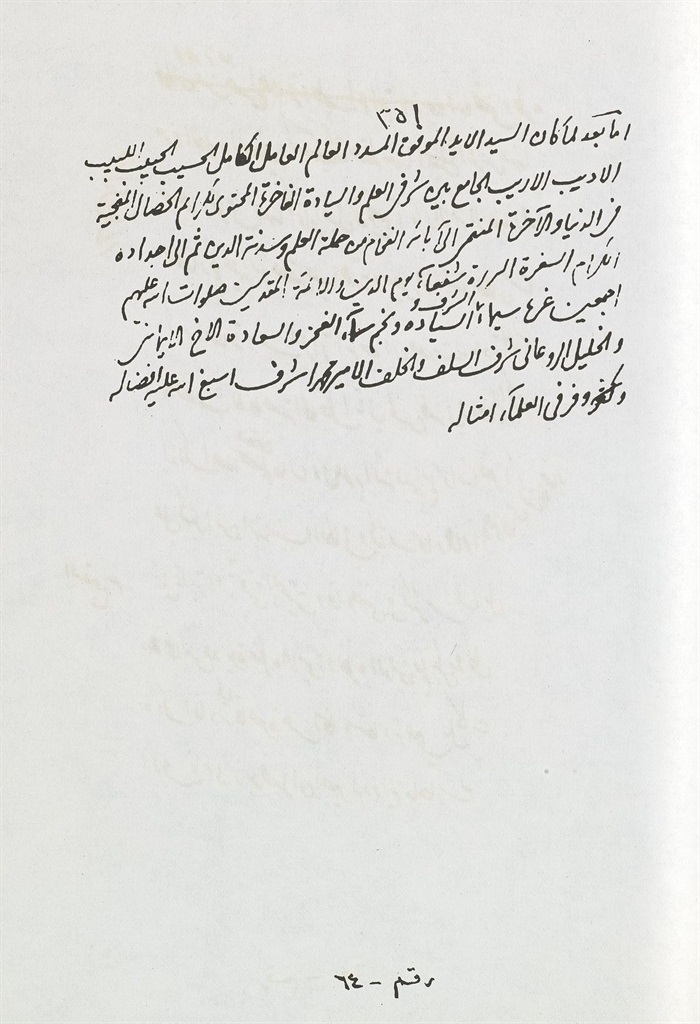 ١٣٥
اما بعد لما كان السيد الايد الموفق المسدد العالم العامل الكامل الحسيب النجيب اللبيب
الاديب الاريب الجامع بين شرفى العلم والسيادة الفاخرة المحتوى لكرائم الخصال المنجية
فى الدنيا والآخرة المنتمى الى آبائه الفخام من حملة العلم وسدنة الدين ثم الى اجداده
الكرام السفرة البررة شفعاء يوم الدين والائمة المقدسين صلوات الله عليهم
اجمعين غرة سيماء السيادة والشرف ونجم سماء الفخر والسعادة الاخ الايمانى
والخليل الروحانى شرف السلف والخلف الامير محمد اشرف اسبغ الله عليه افضاله
وكثر فى العلماء امثاله
رقم - ٦٤